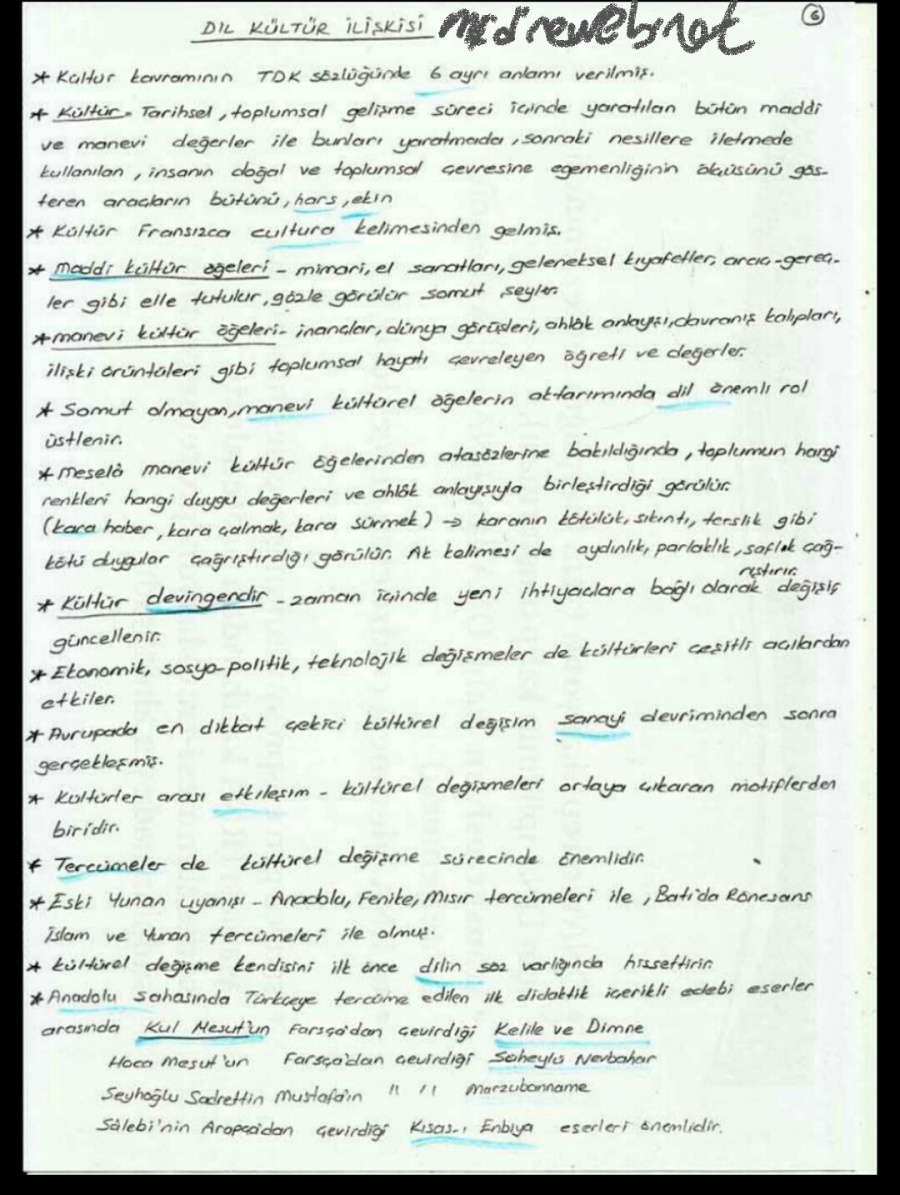 DİL KÜLTÜR İLİŞKİSİ
6
* Kültür kavramının TDK sözlüğünde 6 ayrı anlamı verilmiş.
* Kültür = Tarihsel, toplumsal gelişme süreci içinde yaratılan bütün maddi
ve manevi değerler ile bunları yaratmada, sonraki nesillere iletmede
kullanılan, insanın doğal ve toplumsal çevresine egemenliğinin ölçüsünü gös-
teren araçların bütünü, hars, ekin
* Kültür Fransızca cultura kelimesinden gelmiş.
* Maddi kültür öğeleri - mimari, el sanatları, geleneksel kıyafetler, araç-gereç-
ler gibi elle tutulur, gözle görülür somut şeyler.
* manevi kültür öğeleri - inançlar, dünya görüşleri, ahlâk anlayışı, davranış kalıpları,
ilişki örüntüleri gibi toplumsal hayatı çevreleyen öğreti ve değerler.
* Somut olmayan, manevi kültürel öğelerin aktarımında dil önemli rol
üstlenir.
* Meselâ manevi kültür öğelerinden atasözlerine bakıldığında, toplumun hangi
renkleri hangi duygu değerleri ve ahlâk anlayışıyla birleştirdiği görülür.
(kara haber, kara çalmak, kara sürmek) → karanın kötülük, sıkıntı, terslik gibi
kötü duygular çağrıştırdığı görülür. Ak kelimesi de aydınlık, parlaklık, saflık çağ-
rıştırır.
* Kültür devingendir - zaman içinde yeni ihtiyaçlara bağlı olarak değişir
güncellenir.
* Ekonomik, sosyo-politik, teknolojik değişmeler de kültürleri çeşitli açılardan
etkiler.
* Avrupada en dikkat çekici kültürel değişim sanayi devriminden sonra
gerçekleşmiş.
* Kültürler arası etkileşim - kültürel değişmeleri ortaya çıkaran motiflerden
biridir.
* Tercümeler de kültürel değişme sürecinde önemlidir.
* Eski Yunan uyanışı - Anadolu, Fenike, Mısır tercümeleri ile, Batı'da Rönesans
İslam ve Yunan tercümeleri ile olmuş.
* kültürel değişme kendisini ilk önce dilin söz varlığında hissettirir.
* Anadolu sahasında Türkçeye tercüme edilen ilk didaktik içerikli edebi eserler
arasında Kul Mesut'un Farsça'dan çevirdiği Kelile ve Dimne
Hoca Mesut'un Farsça'dan çevirdiği Süheylü Nevbahar
Şeyhoğlu Sadrettin Mustafa'ın " " Marzubanname
Sâlebi'nin Arapça'dan çevirdiği Kısas-ı Enbiya eserleri önemlidir.